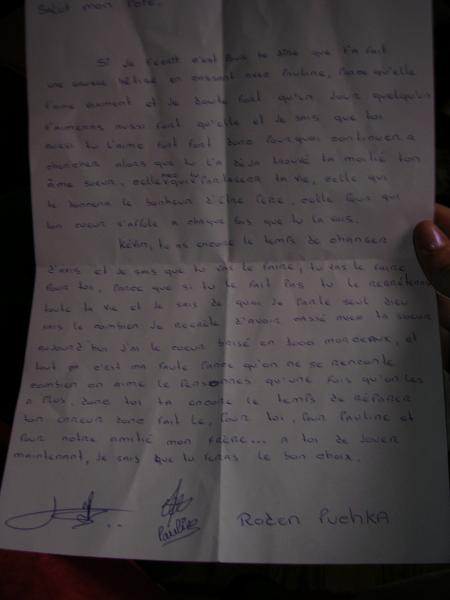 Salut mon Pote,
Si je t'écrit c'est pour te dire que t'a fait
une grosse bêtise en cassant avec Pauline, parce qu'elle
t'aime vraiment et je doute fort qu'un jour quelqu'un
t'aimeras aussi fort qu'elle et je sais que toi
aussi tu l'aime fort fort donc pourquoi continuer a
chercher alors que tu l'a déja trouvé ta moitié ton
âme soeur, celle avec qui tu partagera ta vie, celle qui
te donnera le bonheur d'être père, celle pour qui
ton coeur s'affole a chaque fois que tu la vois.
Kévin, tu as encore le temps de changer
d'avis et je sais que tu vas le faire, tu vas le faire
pour toi, parce que si tu le fait pas tu le regrèteras
toute ta vie et je sais de quoi je parle seul dieu
sais le combien je regrète d'avoir cassé avec ta soeur
aujourd'hui j'ai le coeur brisé en 1000 morceaux, et
tout ça c'est ma faute parce qu'on ne se rend compte
combien on aime le personnes qu'une fois qu'on les
a plus, donc toi ta encore le temps de réparer
ton erreur donc fait le, pour toi, pour Pauline et
pour notre amitié mon FRÈRE... a toi de jouer
maintenant, je sais que tu feras le bon choix.
Pauline
Roden Puchka